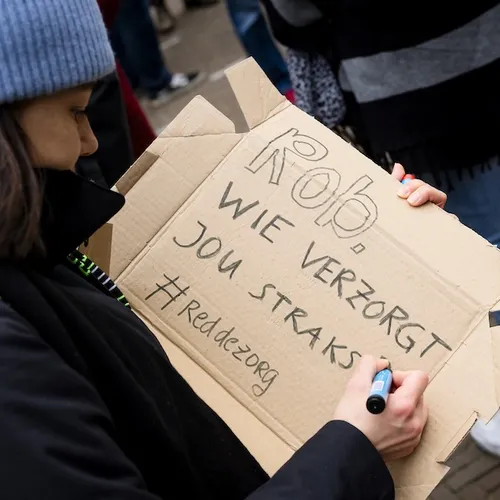 Rob,
WIE VERZORGT
JOU STRAKS
#Reddezorg